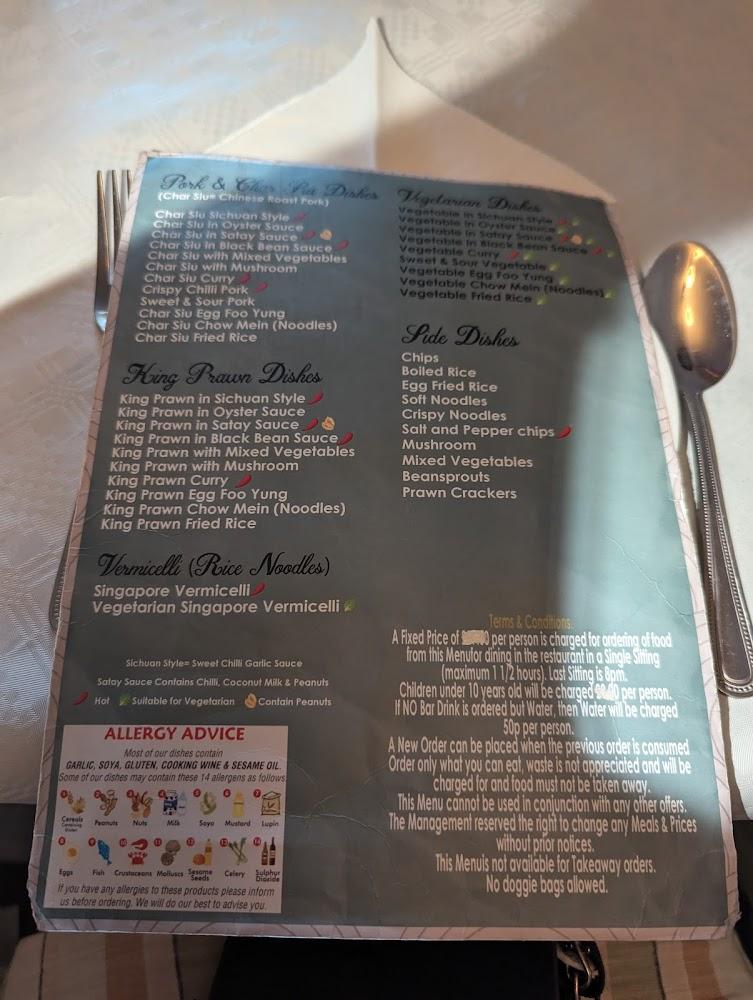 Pork & Char Siu Dishes
(Char Siu= Chinese Roast Pork)
Char Siu Sichuan Style
Char Siu in Oyster Sauce
Char Siu in Satay Sauce
Char Siu in Black Bean Sauce
Char Siu with Mixed Vegetables
Char Siu with Mushroom
Char Siu Curry
Crispy Chilli Pork
Sweet & Sour Pork
Char Siu Egg Foo Yung
Char Siu Chow Mein (Noodles)
Char Siu Fried Rice
King Prawn Dishes
King Prawn in Sichuan Style
King Prawn in Oyster Sauce
King Prawn in Satay Sauce
King Prawn in Black Bean Sauce
King Prawn with Mixed Vegetables
King Prawn with Mushroom
King Prawn Curry
King Prawn Egg Foo Yung
King Prawn Chow Mein (Noodles)
King Prawn Fried Rice
Vermicelli (Rice Noodles)
Singapore Vermicelli
Vegetarian Singapore Vermicelli
Sichuan Style= Sweet Chilli Garlic Sauce
Satay Sauce Contains Chilli, Coconut Milk & Peanuts
Hot Suitable for Vegetarian Contain Peanuts
ALLERGY ADVICE
Most of our dishes contain
GARLIC, SOYA, GLUTEN, COOKING WINE & SESAME OIL.
Some of our dishes may contain these 14 allergens as follows
1 2 3 4 5 6 7
Cereals Containing Gluten Peanuts Nuts Milk Soya Mustard Lupin
8 9 10 11 12 13 14
Eggs Fish Crustaceans Molluscs Sesame Seeds Celery Sulphur Dioxide
If you have any allergies to these products please inform
us before ordering. We will do our best to advise you.
Vegetarian Dishes
Vegetable in Sichuan Style
Vegetable in Oyster Sauce
Vegetable in Satay Sauce
Vegetable in Black Bean Sauce
Vegetable Curry
Sweet & Sour Vegetable
Vegetable Egg Foo Yung
Vegetable Chow Mein (Noodles)
Vegetable Fried Rice
Side Dishes
Chips
Boiled Rice
Egg Fried Rice
Soft Noodles
Crispy Noodles
Salt and Pepper chips
Mushroom
Mixed Vegetables
Beansprouts
Prawn Crackers
Terms & Conditions.
A Fixed Price of per person is charged for ordering of food
from this Menufor dining in the restaurant in a Single Sitting
(maximum 1 1/2 hours). Last Sitting is 8pm.
Children under 10 years old will be charged per person.
If NO Bar Drink is ordered but Water, then Water will be charged
50p per person.
A New Order can be placed when the previous order is consumed
Order only what you can eat, waste is not appreciated and will be
charged for and food must not be taken away.
This Menu cannot be used in conjunction with any other offers.
The Management reserves the right to change any Meals & Prices
without prior notices.
This Menuis not available for Takeaway orders.
No doggie bags allowed.